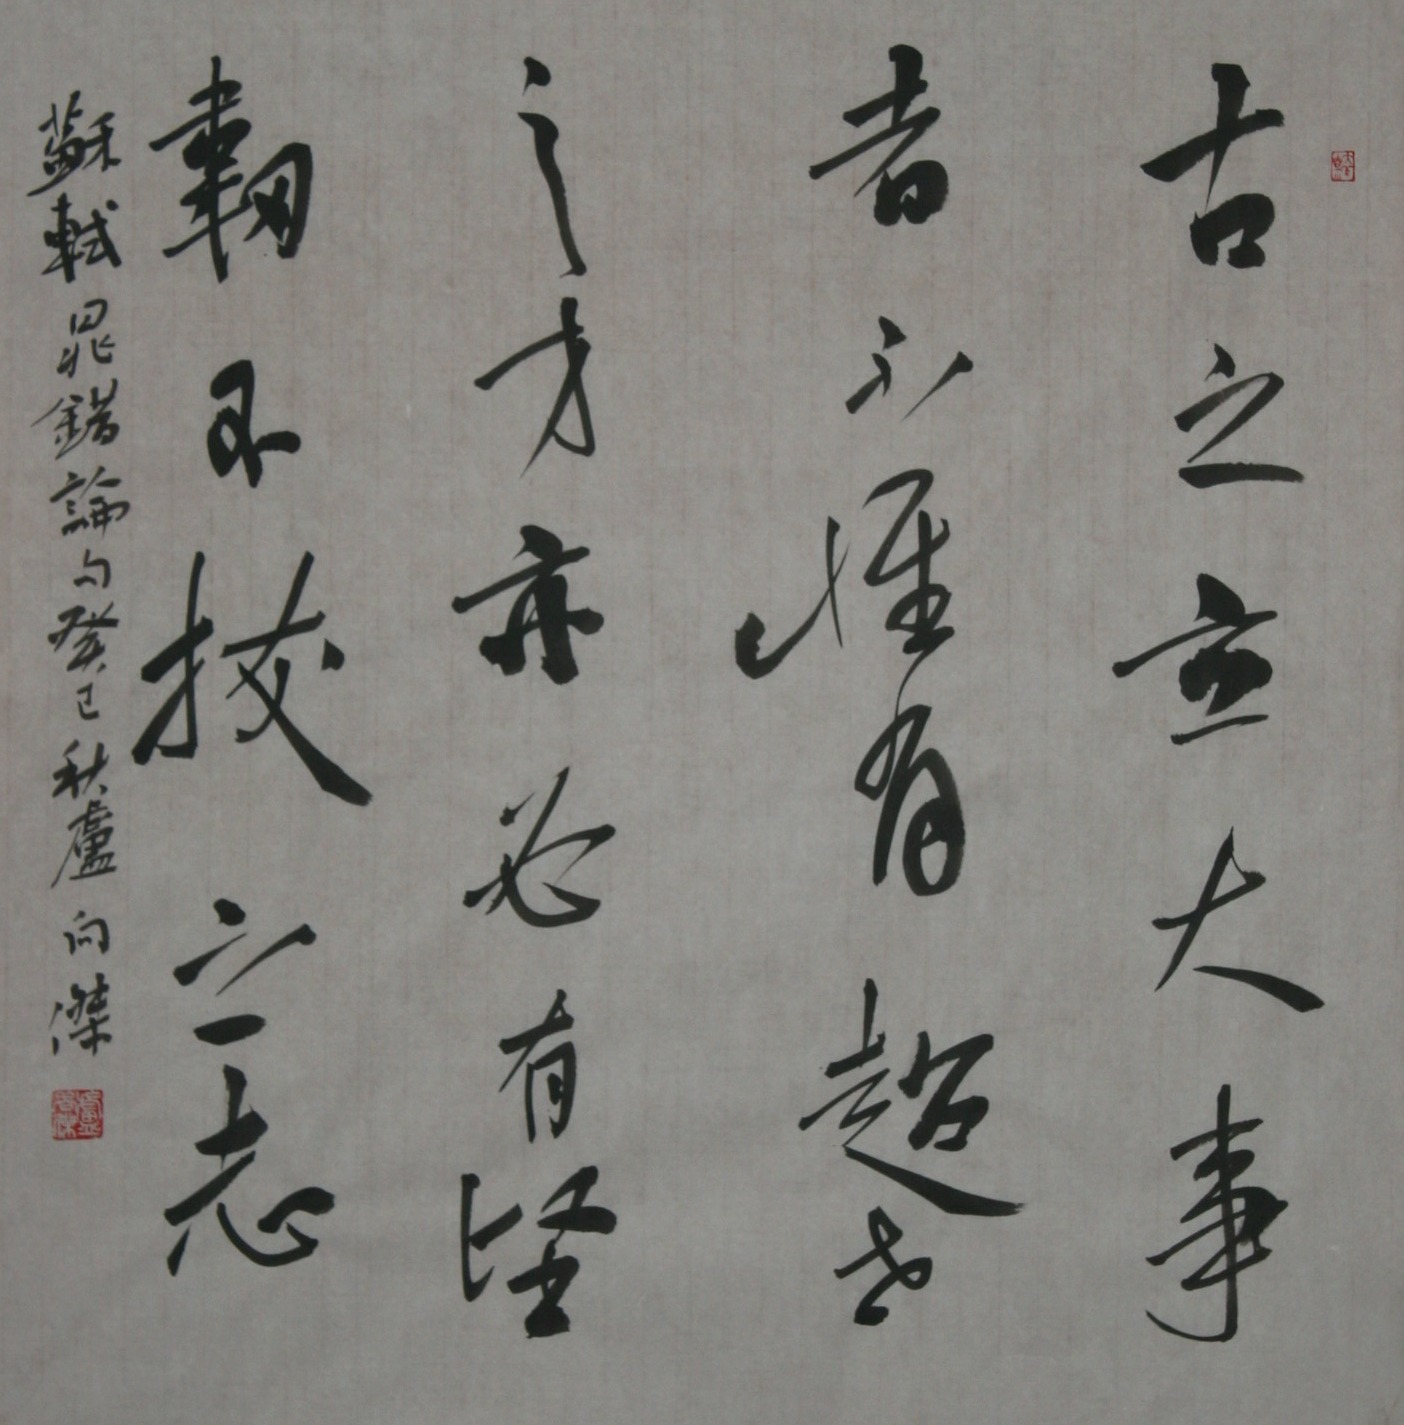 古之立大事
者不惟有超世
之才亦必有堅
韌不拔之志
蘇軾晁錯論句癸巳秋盧向傑